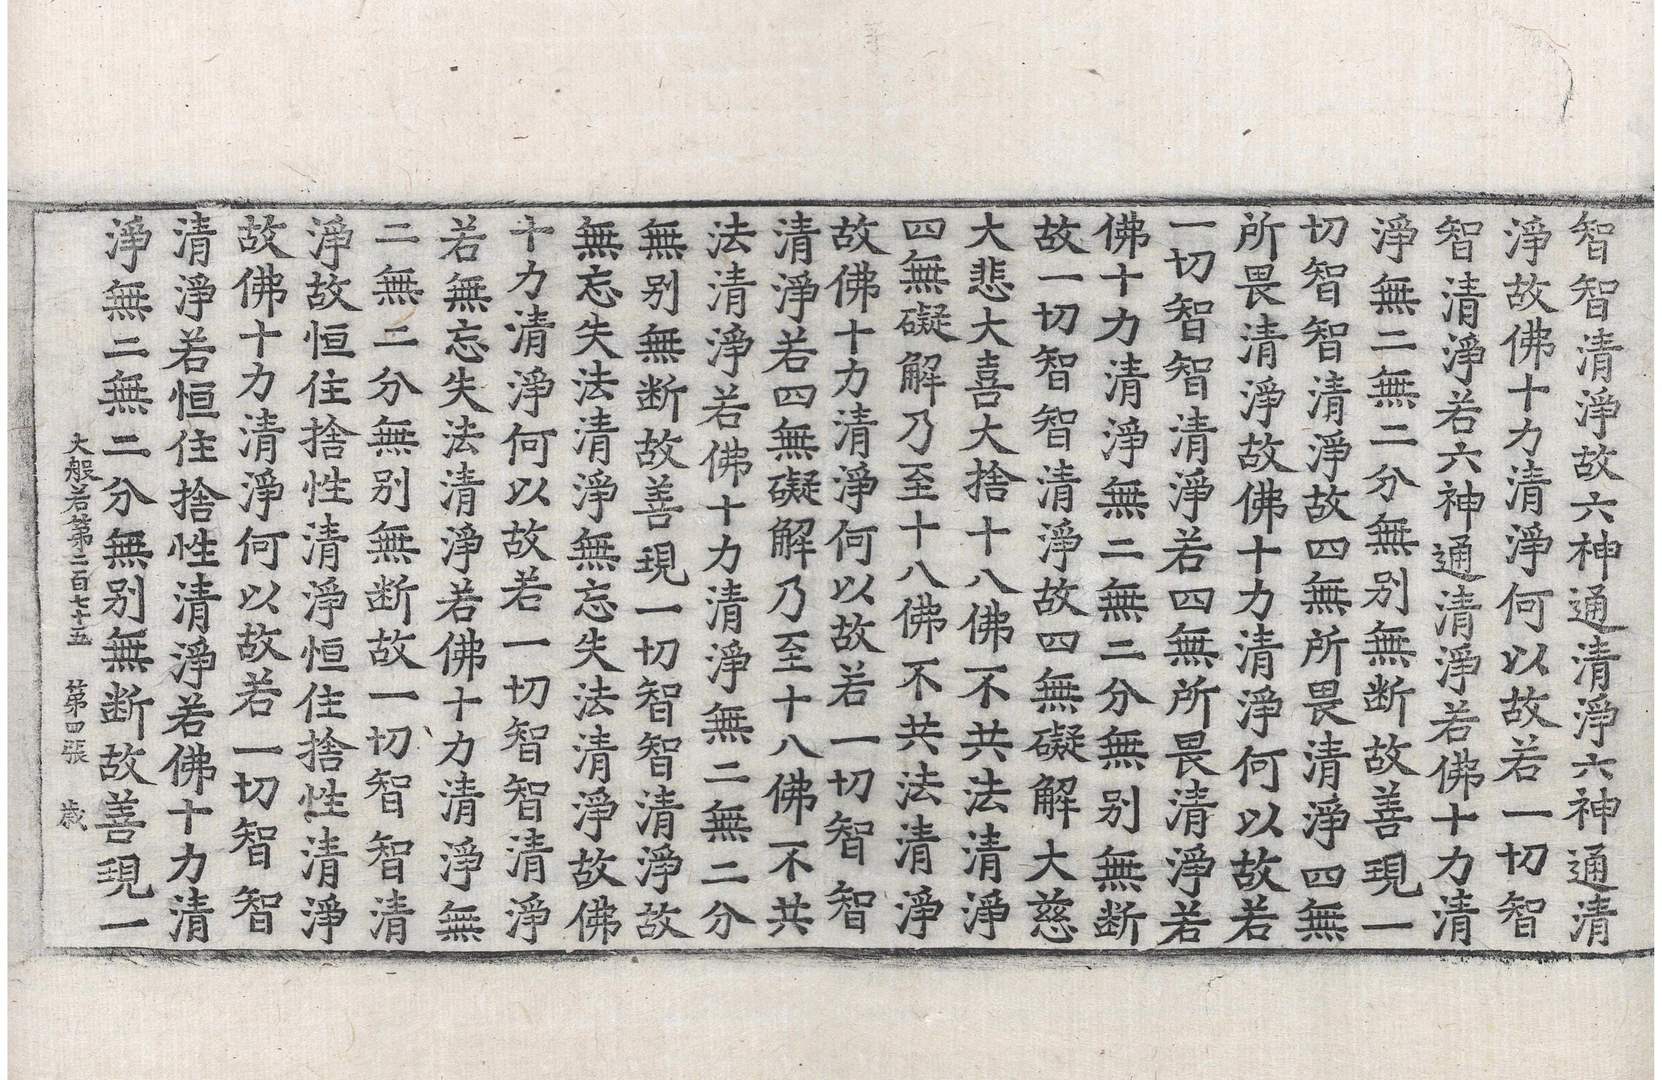 智智清淨故六神通清淨六神通清
淨故佛十力清淨何以故若一切智
智清淨若六神通清淨若佛十力清
淨無二無二分無別無断故善現一
切智智清淨故四無所畏清淨四無
所畏清淨故佛十力清淨何以故若
一切智智清淨若四無所畏清淨若
佛十力清淨無二無二分無別無断
故一切智智清淨故四無礙解大慈
大悲大喜大捨十八佛不共法清淨
四無礙解乃至十八佛不共法清淨
故佛十力清淨何以故若一切智智
清淨若四無礙解乃至十八佛不共
法清淨若佛十力清淨無二無二分
無别無断故善現一切智智清淨故
無忘失法清淨無忘失法清淨故佛
十力清淨何以故若一切智智清淨
若無忘失法清淨若佛十力清淨無
二無二分無别無断故一切智智清
淨故恒住捨性清淨恒住捨性清淨
故佛十力清淨何以故若一切智智
清淨若恒住捨性清淨若佛十力清
淨無二無二分無别無断故善現一
大般若第二百七十五 第四張 歲